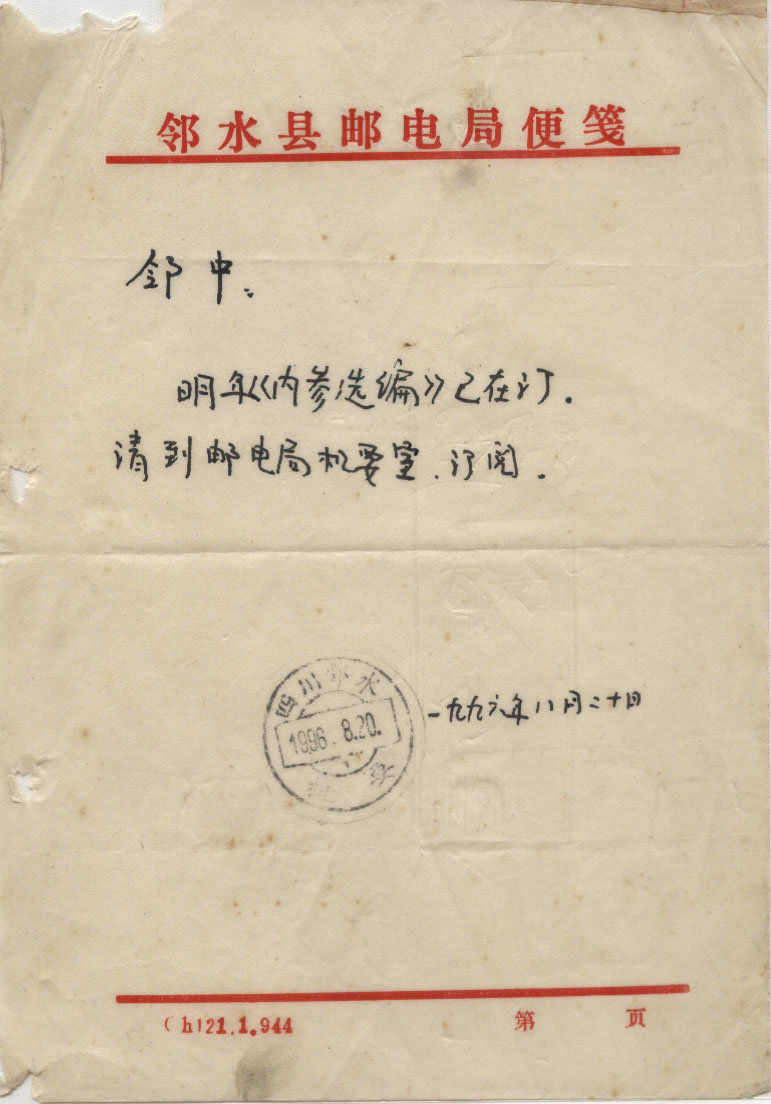 邻水县邮电局便笺
邻中：
明年《内参选编》已在订．
请到邮电局机要室．订阅．
四川邻水
1996.8.20.
机要
一九九六年八月二十日
(h)21.1.944
第 页